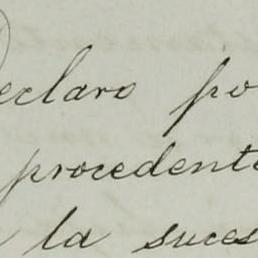 Declaro po
procedente
la suces